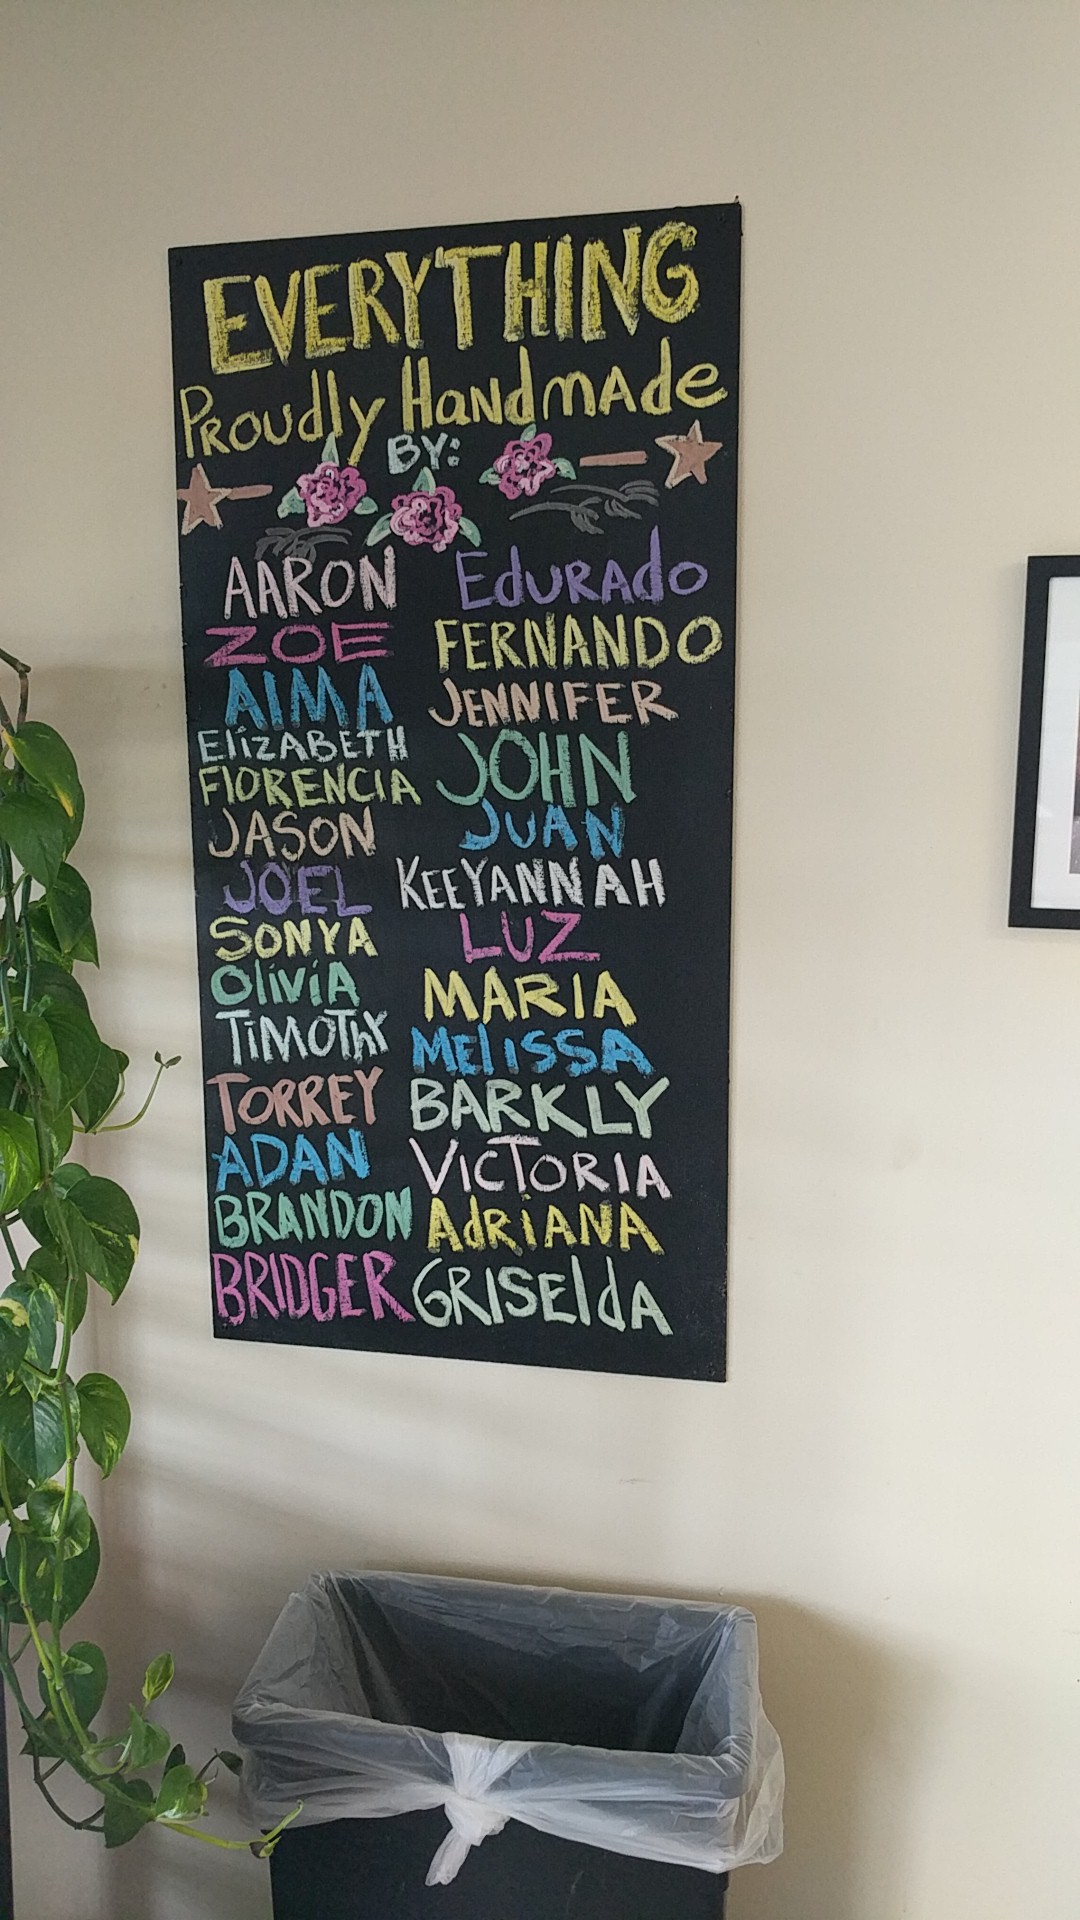 EVERYTHING
Proudly Handmade
BY:
AARON Edurado
ZOE FERNANDO
AIMA JENNIFER
ElizABETH JOHN
FlORENCIA JUAN
JASON KEEYANNAH
JOEL LUZ
SONYA MARIA
OliviA MElISSA
TiMOThY BARKLY
TORREY VICTORIA
ADAN AdRiANA
BRANDON GRISEldA
BRIDGER